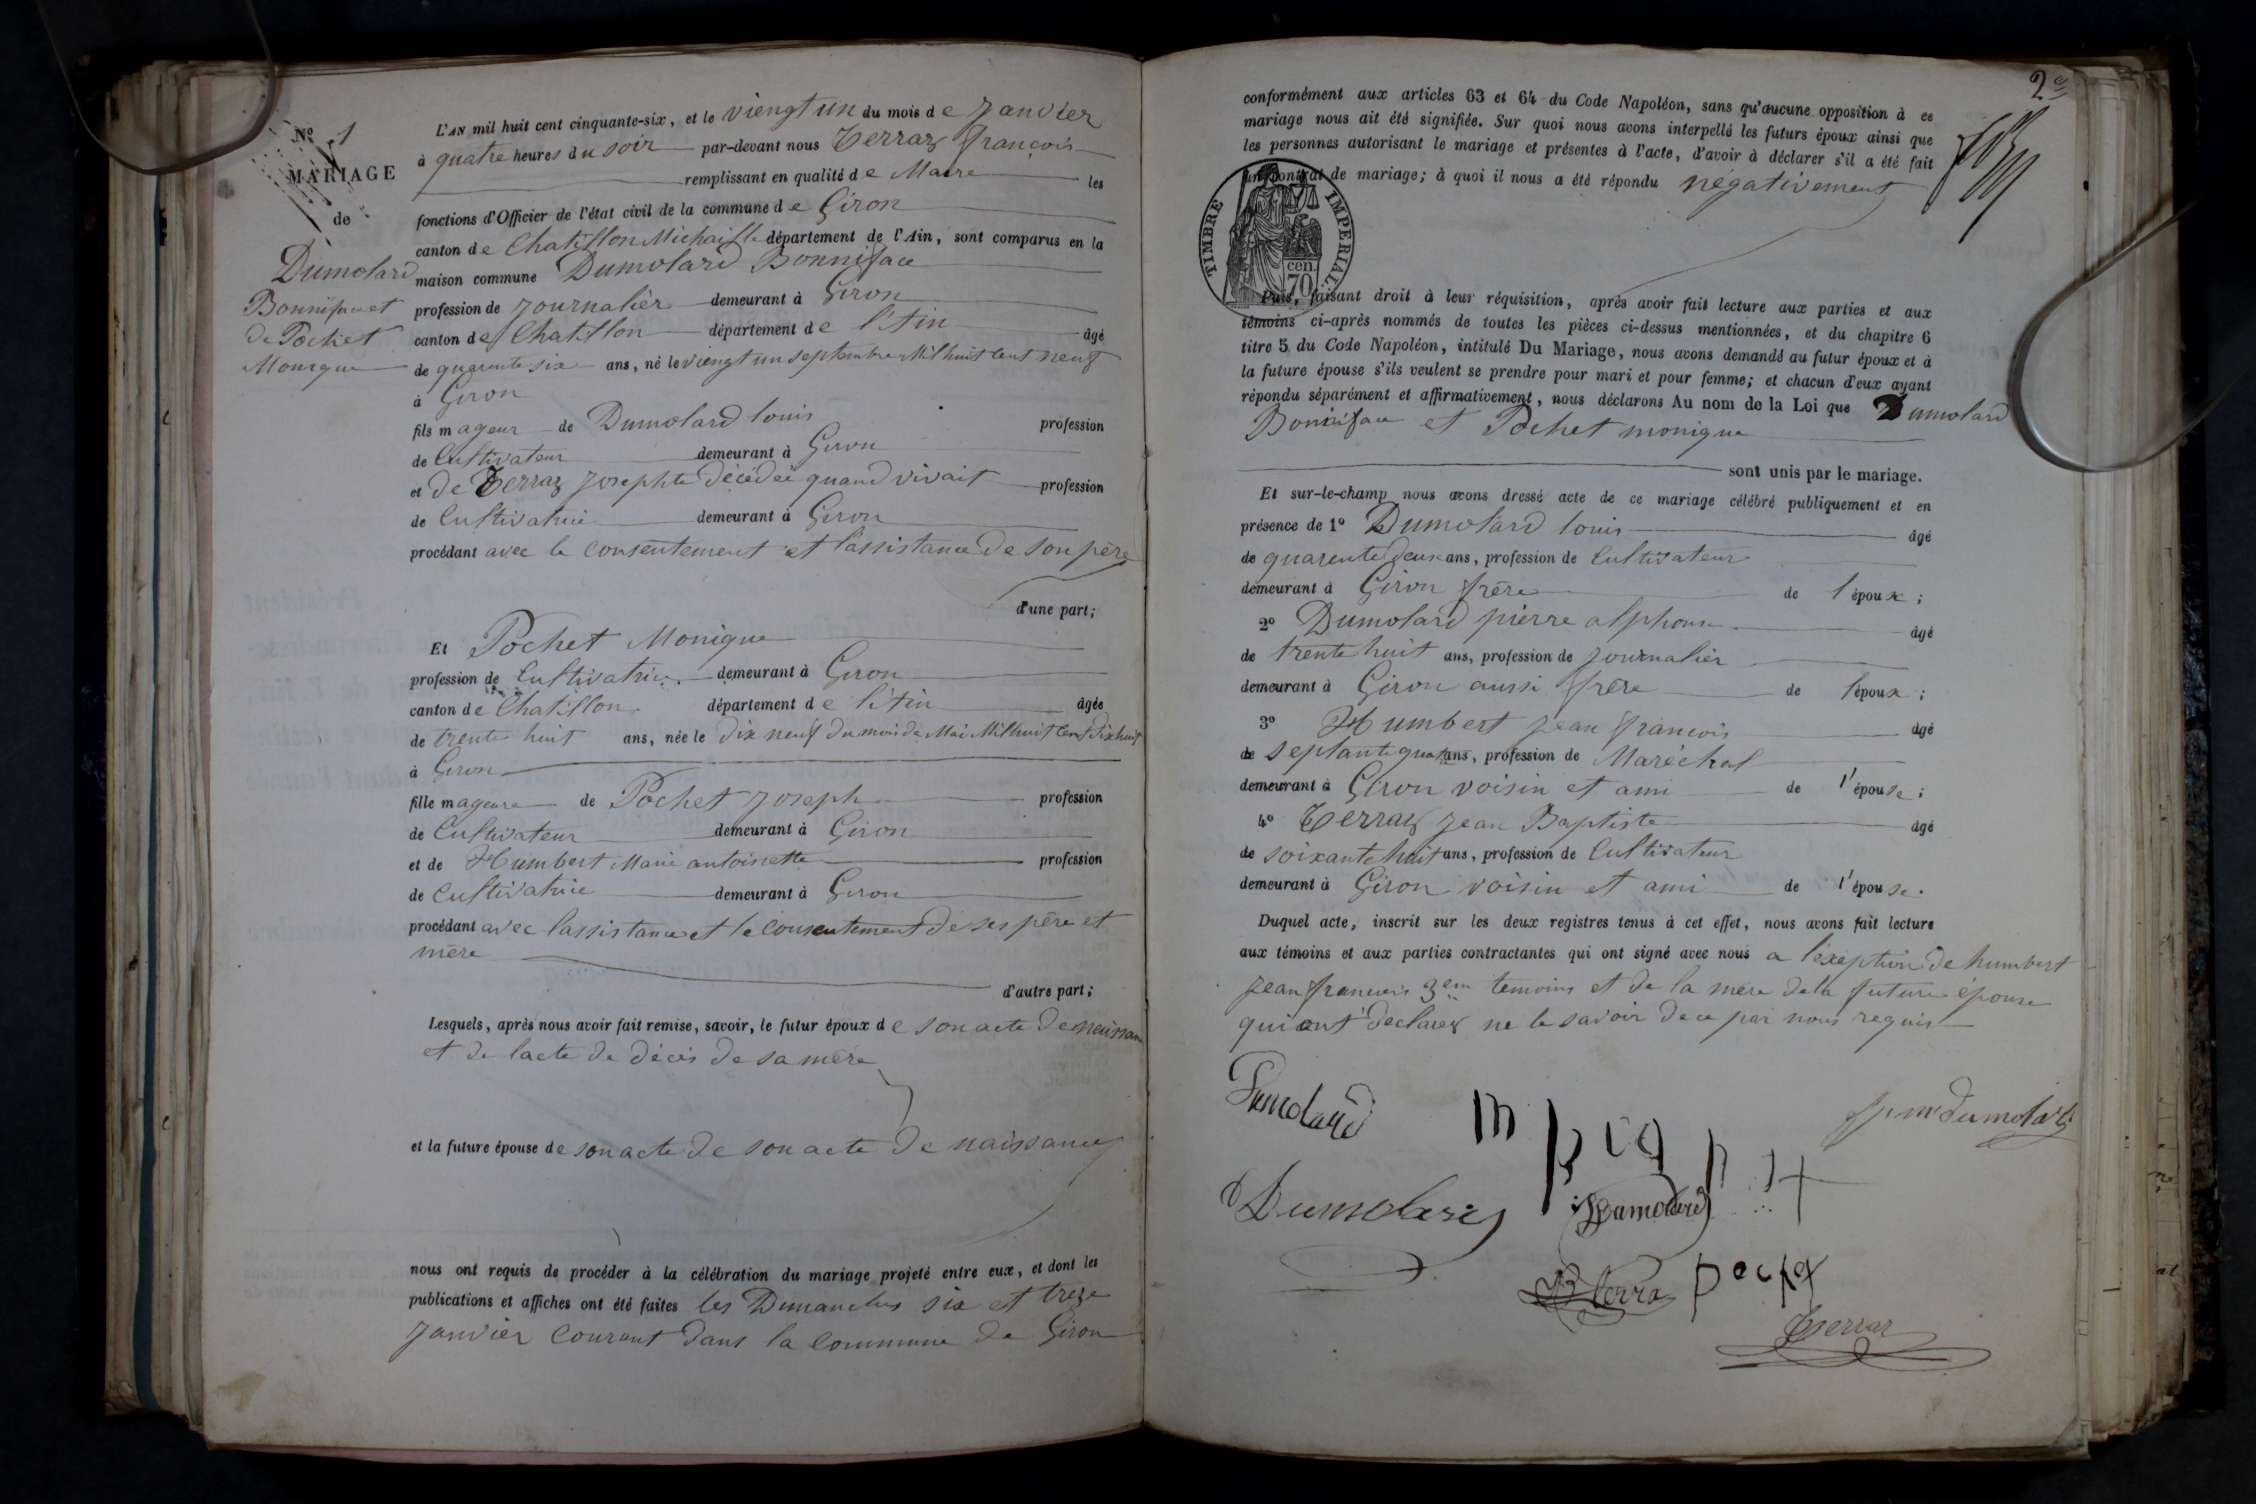 N° 1
MARIAGE
de
Dumolard
Bonniface et
de Pochet
Monique
L'AN mil huit cent cinquante-six, et le viengt un du mois de Janvier
à quatre heures du soir par-devant nous Terraz françois
remplissant en qualité de Maire les
fonctions d'Officier de l'état civil de la commune de Giron
canton de Chatillon Michaille département de l'Ain, sont comparus en la
maison commune Dumolard Bonniface
profession de journalier demeurant à Giron
canton de Chatillon département de l'Ain âgé
de quarente six ans, né le viengt un septembre Mil huit cent neuf
à Giron
fils mageur de Dumolard louis profession
de Cultivateur demeurant à Giron
et de Terraz Josephte décédée quand vivait profession
de Cultivatrice demeurant à Giron
procédant avec le consentement et l'assistance de son père
d'une part;
Et Pochet Monique
profession de Cultivatrice demeurant à Giron
canton de Chatillon département de l'Ain âgée
de trente huit ans, née le dix neuf du mois de Mai Mil huit cent dix huit
à Giron
fille mageure de Pochet Joseph profession
de Cultivateur demeurant à Giron
et de Humbert Marie antoinette profession
de Cultivatrice demeurant à Giron
procédant avec lassistance et le consentement de ses père et
mère
d'autre part;
Lesquels, après nous avoir fait remise, savoir, le futur époux de son acte de naissan
et de lacte de décès de sa mère
et la future épouse de son acte de son acte de naissance
nous ont requis de procéder à la célébration du mariage projeté entre eux, et dont les
publications et affiches ont été faites les Dimanches six et treze
Janvier Courant dans la Commune de Giron
2e
conformément aux articles 63 et 64 du Code Napoléon, sans qu'aucune opposition à ce
mariage nous ait été signifiée. Sur quoi nous avons interpellé les futurs époux ainsi que
les personnes autorisant le mariage et présentes à l'acte, d'avoir à déclarer s'il a été fait
un contrat de mariage; à quoi il nous a été répondu négativement
TIMBRE IMPERIAL
70 cen.
Puis, faisant droit à leur réquisition, après avoir fait lecture aux parties et aux
témoins ci-après nommés de toutes les pièces ci-dessus mentionnées, et du chapitre 6
titre 5 du Code Napoléon, intitulé Du Mariage, nous avons demandé au futur époux et à
la future épouse s'ils veulent se prendre pour mari et pour femme; et chacun d'eux ayant
répondu séparément et affirmativement, nous déclarons Au nom de la Loi que Dumolard
Bonniface et Pochet monique
sont unis par le mariage.
Et sur-le-champ nous avons dressé acte de ce mariage célébré publiquement et en
présence de 1° Dumolard louis âgé
de quarente deux ans, profession de Cultivateur
demeurant à Giron frère de l'époux;
2° Dumolard pierre alphonse âgé
de trente huit ans, profession de journalier
demeurant à Giron aussi frère de l'époux;
3° Humbert Jean françois âgé
de septante quatre ans, profession de Maréchal
demeurant à Giron voisin et ami de l'épouse;
4° Terraz Jean Baptiste âgé
de soixante huit ans, profession de Cultivateur
demeurant à Giron voisin et ami de l'épouse.
Duquel acte, inscrit sur les deux registres tenus à cet effet, nous avons fait lecture
aux témoins et aux parties contractantes qui ont signé avec nous a l'exeption de humbert
jean francois 3em temoins et de la mère de la future epouse
qui ont declarez ne le savoir de ce par nous requis
Dumolard
Dumolard
Dumolard
Dumolard
Terraz